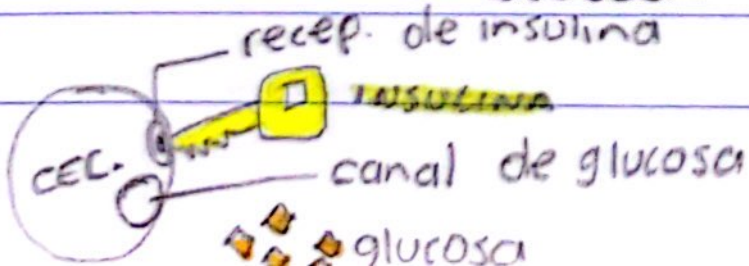 recep. de insulina
INSULINA
CEL.
canal de glucosa
glucosa